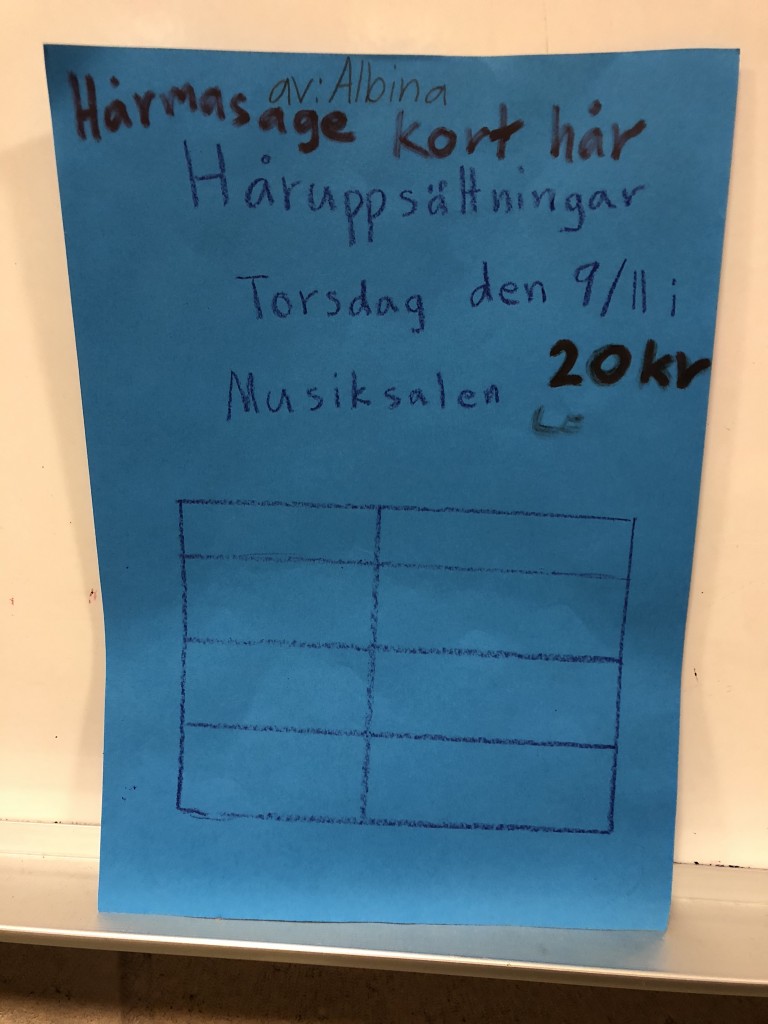 av: Albina
Hårmasage kort hår
Håruppsättningar
Torsdag den 9/11 i
20kr
Musiksalen